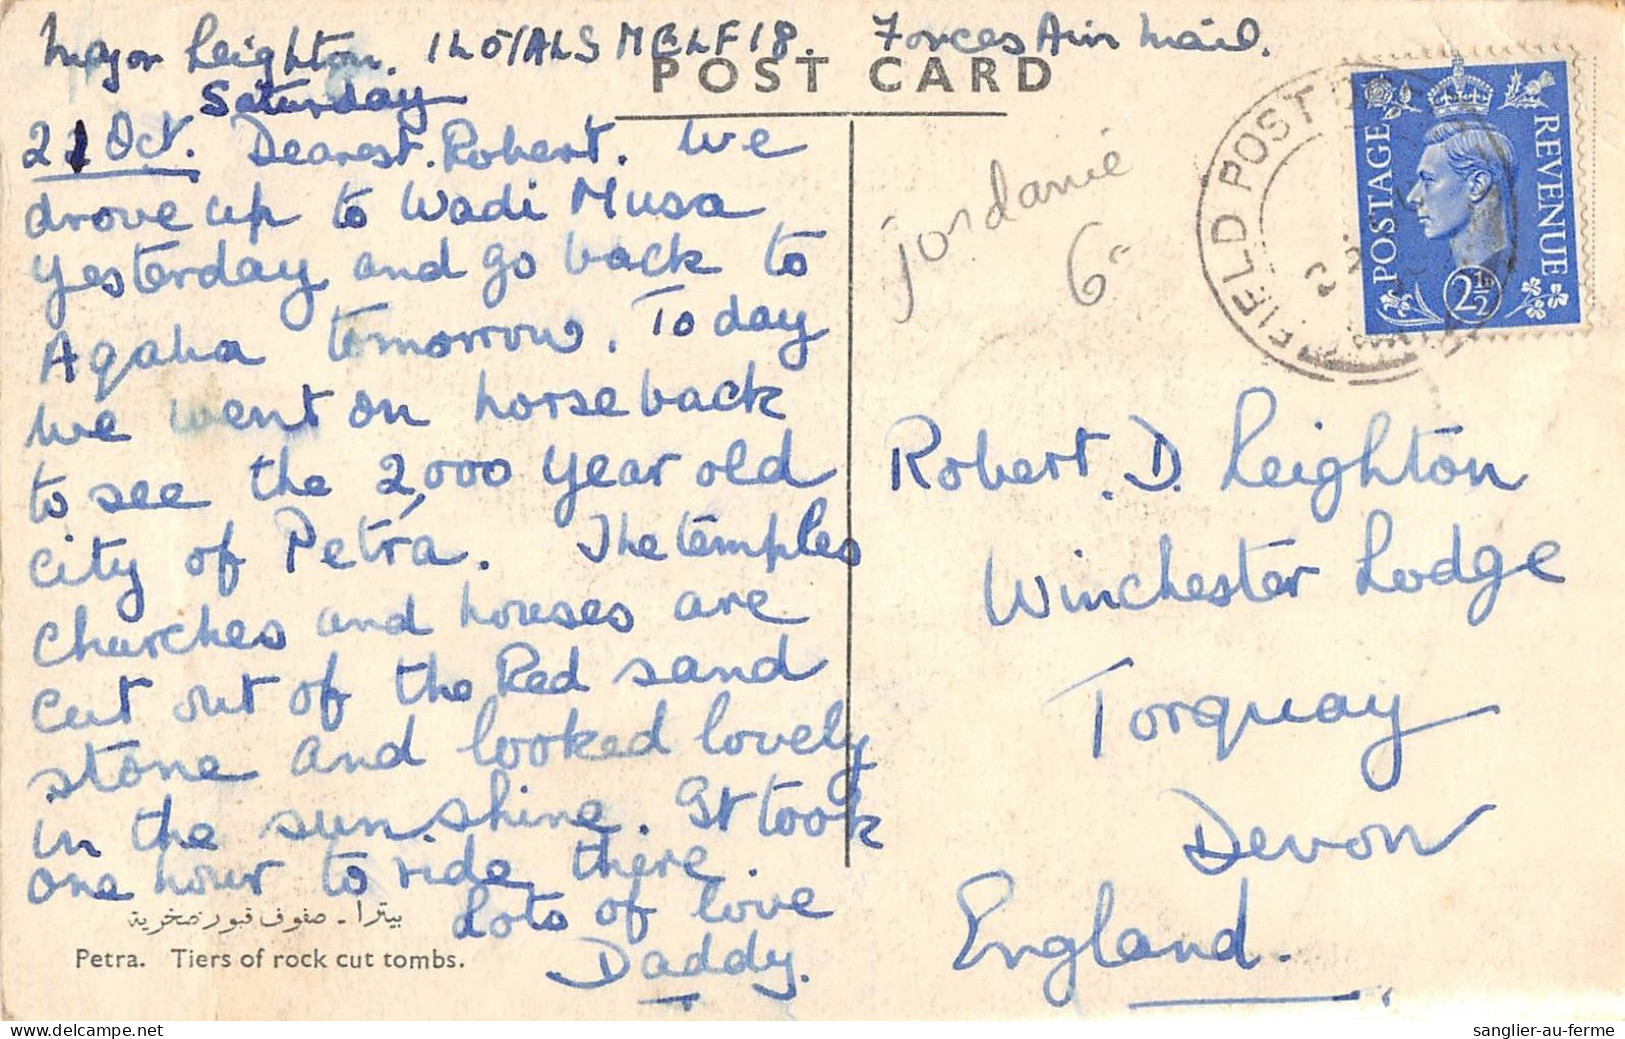 Major Leighton. 1 LO/ALS MELF 18. Forces Air Mail.
POST CARD
Saturday
21 Oct. Dearest Robert. We
drove up to Wadi Musa
yesterday and go back to
Aqaba tomorrow. Today
we went on horse back
to see the 2,000 year old
city of Petra. The temples
churches and houses are
cut out of the Red sand
stone and looked lovely
in the sunshine. It took
one hour to ride there.
Lots of love
Daddy.
بيترا - صفوف قبور صخرية
Petra. Tiers of rock cut tombs.
jordanie
6
FIELD POST OFFICE
POSTAGE
REVENUE
2½D
Robert. D. Leighton
Winchester Lodge
Torquay
Devon
England.
sanglier-au-ferme